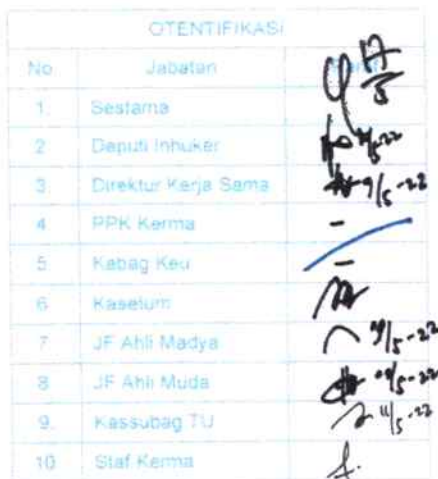 OTENTIFIKASI
No Jabatan Paraf
1. Sestama 17/5
2. Deputi Inhuker
3. Direktur Kerja Sama 9/5-22
4. PPK Kerma -
5. Kabag Keu -
6. Kasetum
7. JF Ahli Madya
8. JF Ahli Muda
9. Kassubag TU 11/5-22
10. Staf Kerma